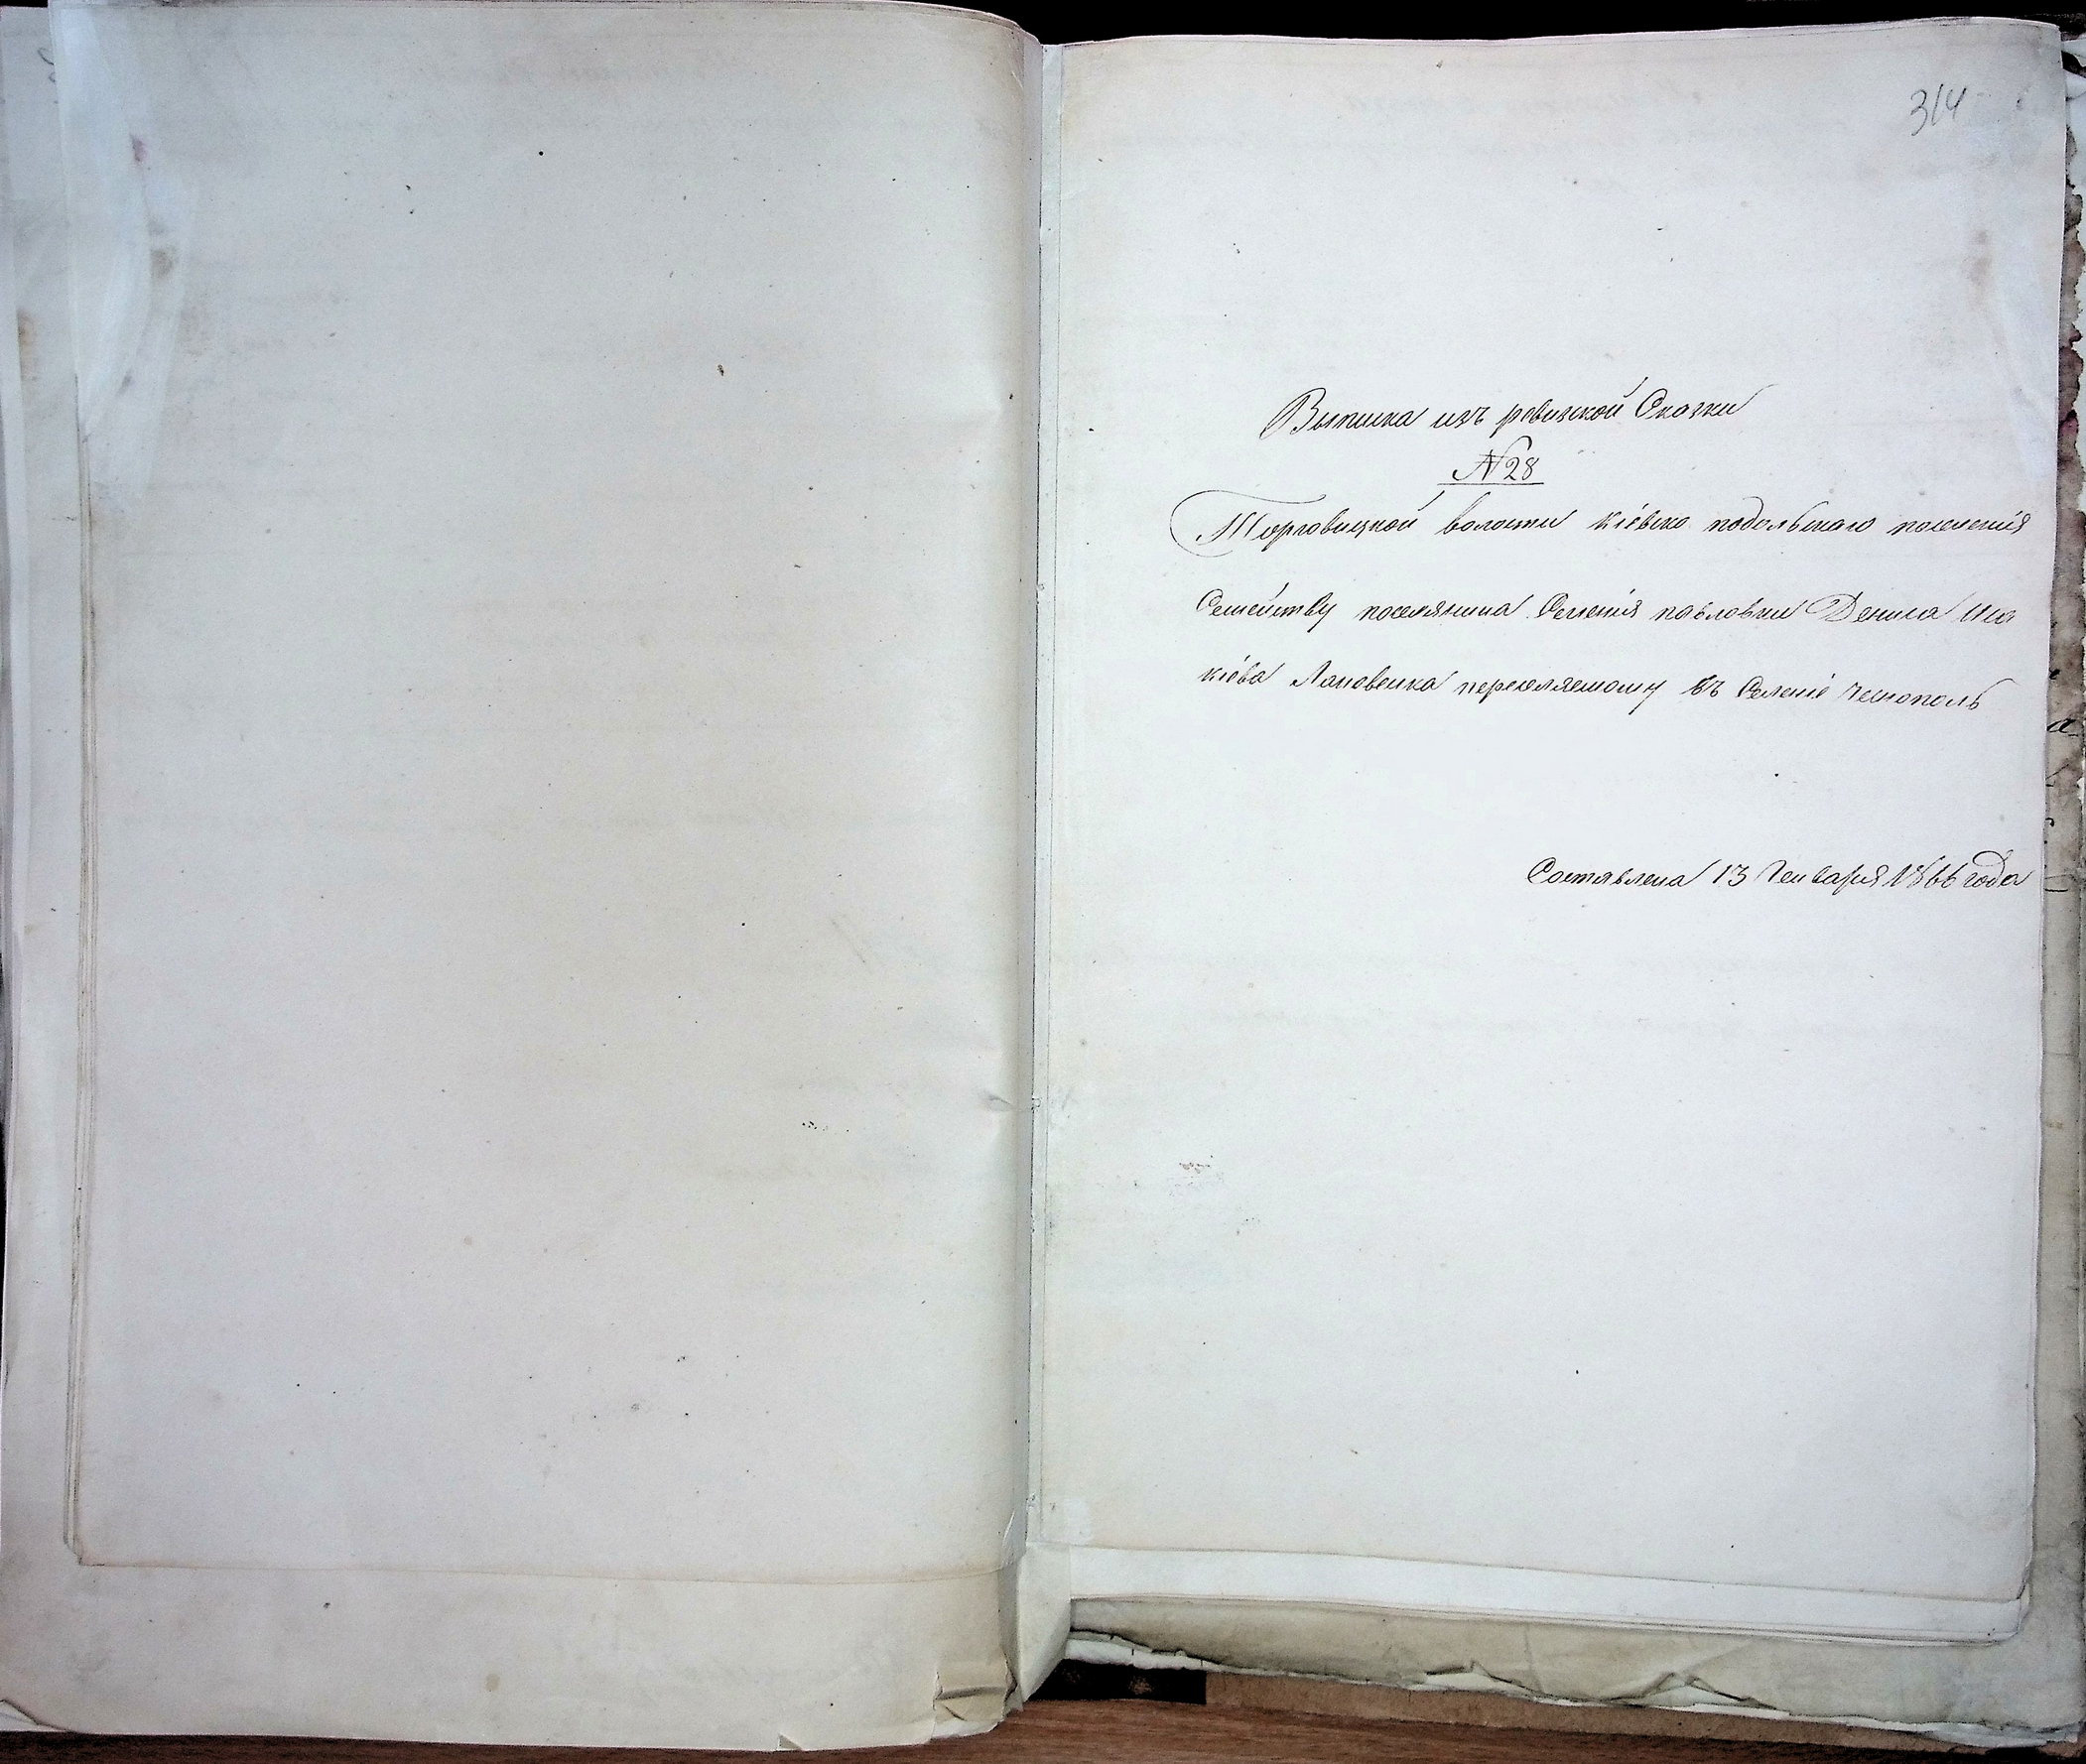 314
Выписка изъ ревизской Сказки
№28
Торговицкой волости кіевско подольскаго поселенія
Семейству поселянина Селенія павловки Дениса Иса
кіева Лановенка переселяемому въ Селеніе Чеснополь
Составлена 13 Генваря 1866 года